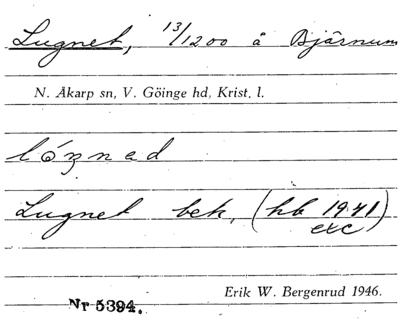 Lugnet, 13/1200 å Bjärnum
N. Åkarp sn, V. Göinge hd, Krist. l.
Lugnet bek. (hb 1941)
etc
Erik W. Bergenrud 1946.
Nr 5394.